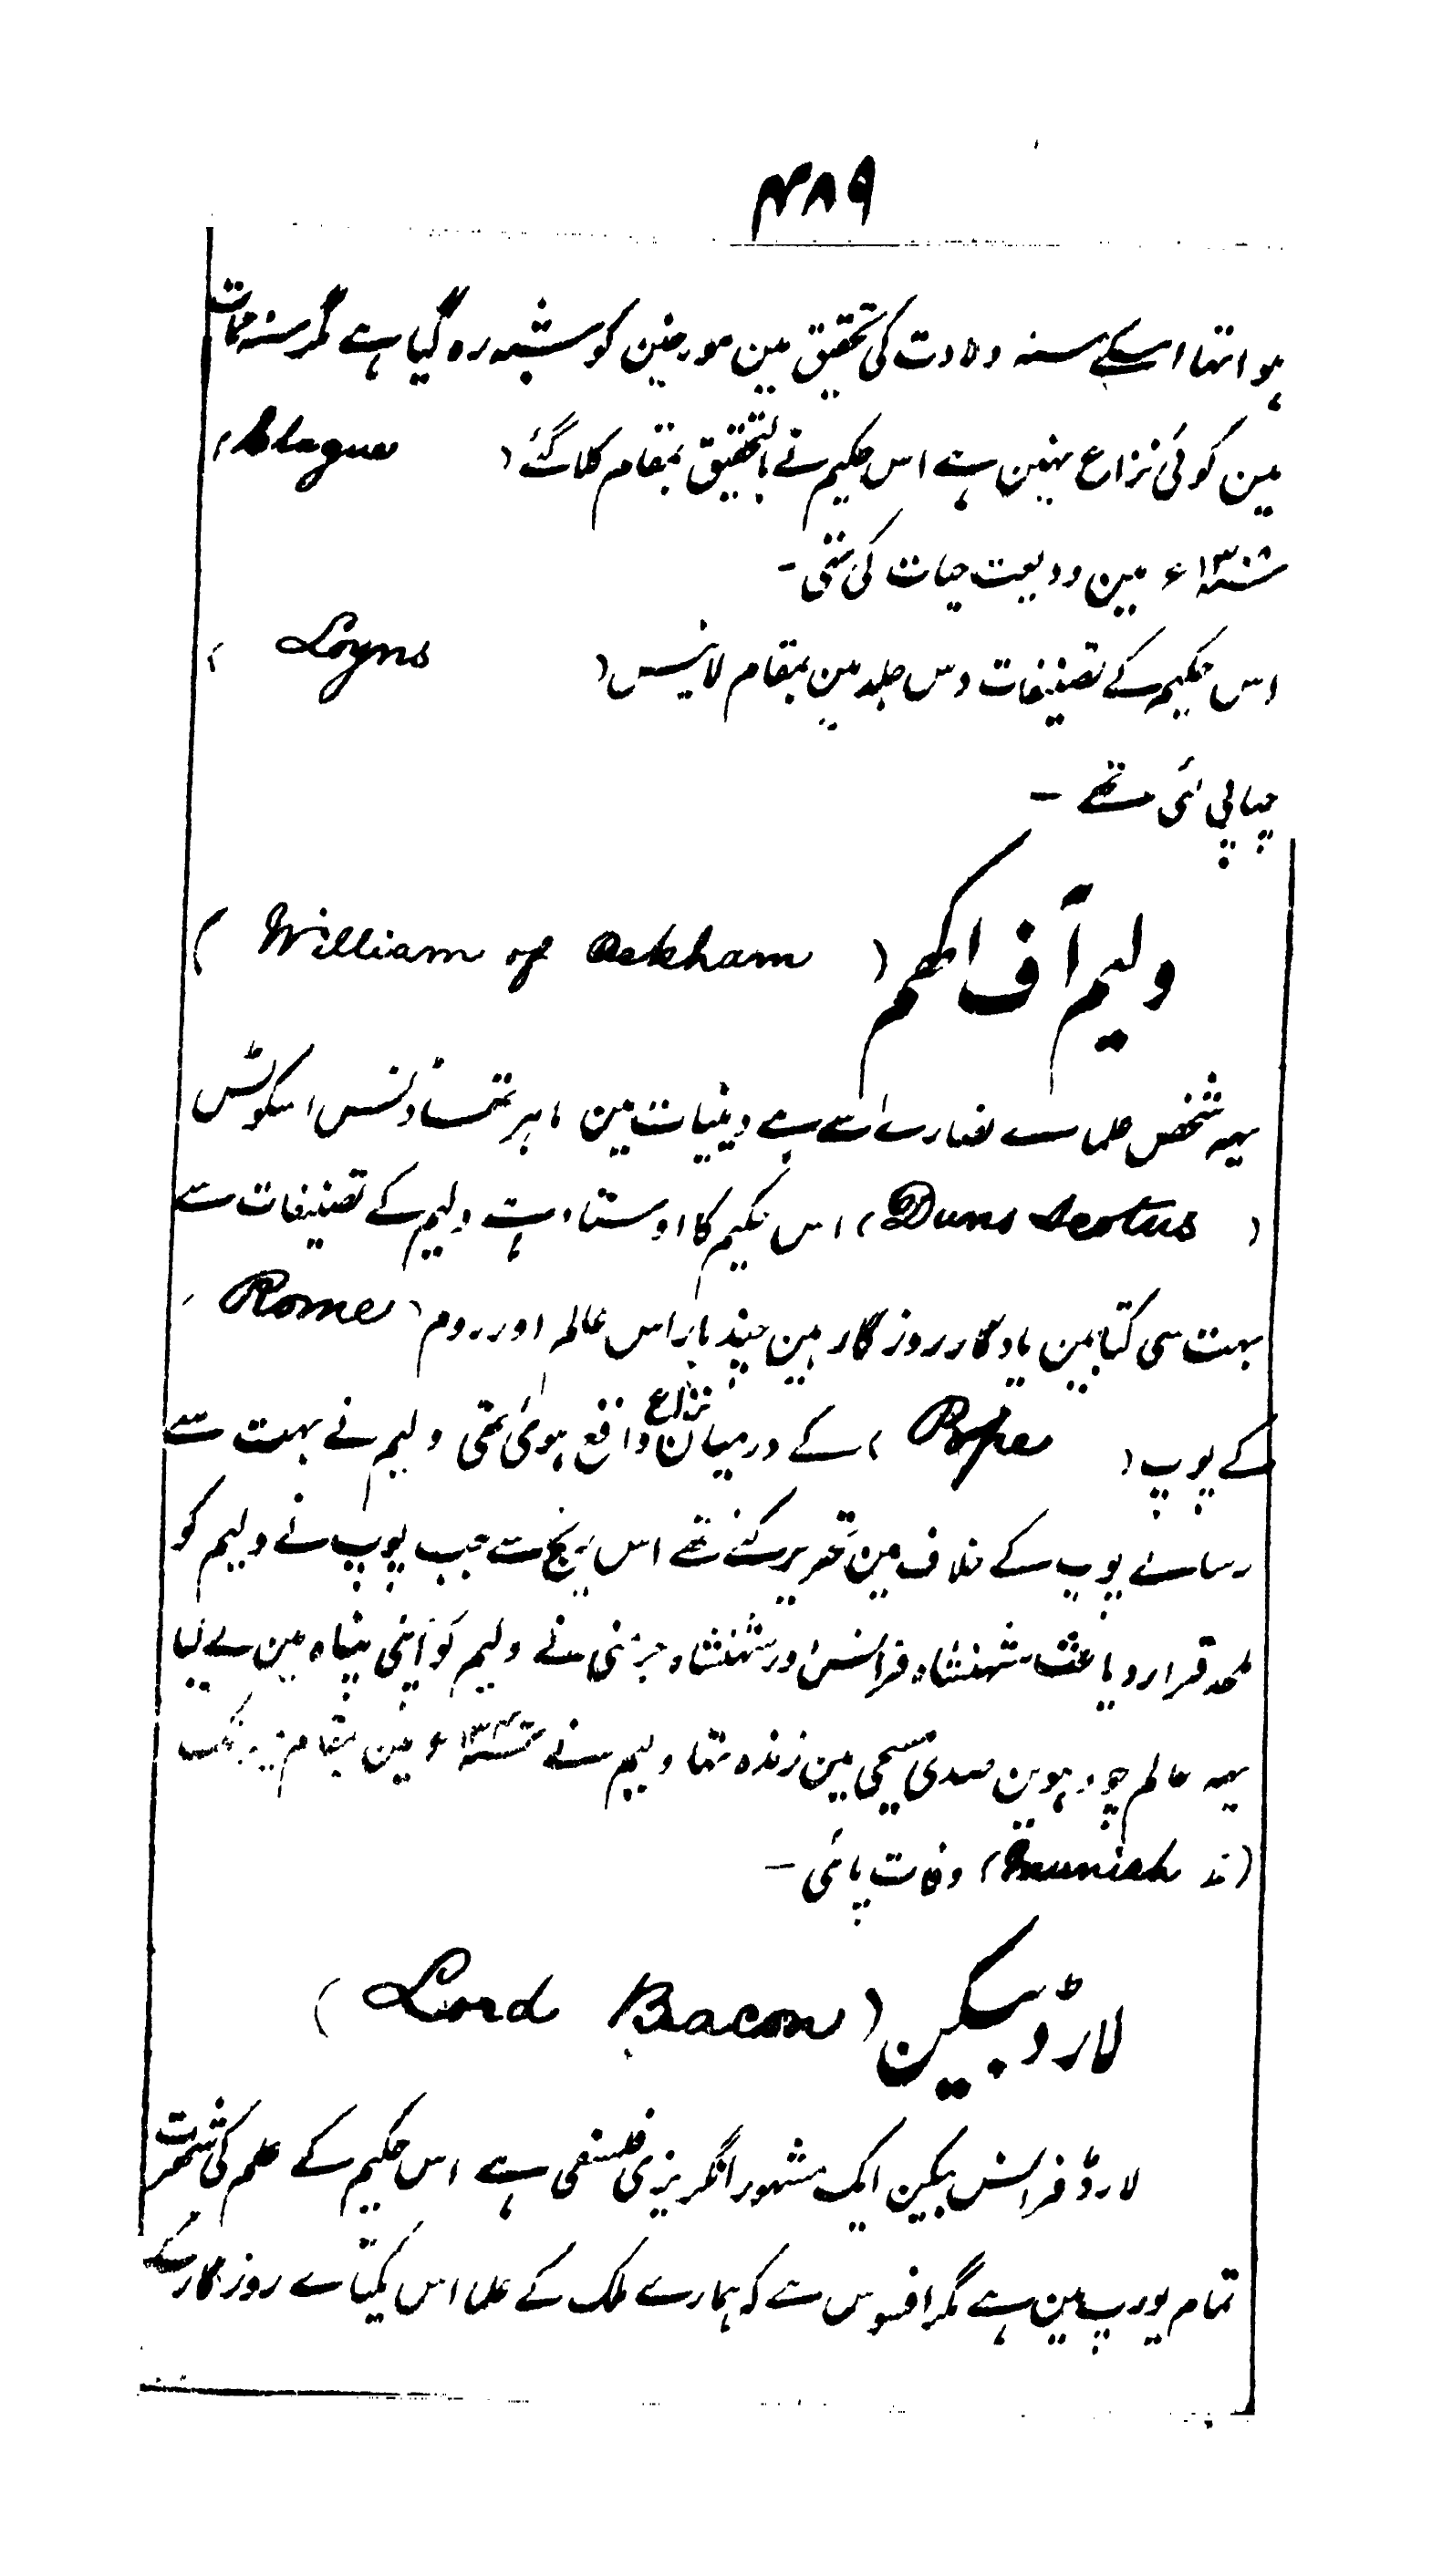 ۴۸۹
ہوا تہا اسکے سنہ ولادت کی تحقیق مین مورخین کو شبہہ رہ گیا ہے مگر سنہ ممات
مین کوئی نزاع نہین ہے اس حکیم نے بالتحقیق بمقام کلاگئے ( Clague )
سنہ ۱۳۰۸ء مین ودیعت حیات کی تہی -
اس حکیم کے تصنیفات دس جلد مین بمقام لاینس ( Loyns )
چہاپی گئی تہے -
ولیم آف اکہم ( William of Ockham )
یہہ شخص علماے نصارے اسے ہے دینیات مین ماہر تہا ڈنس اسکوٹس
( Duns Scotus ) اس حکیم کا اوستاد ہے ولیم کے تصنیفات سے
بہت سی کتابین یادگار روزگار ہین چند بار اس عالم اور روم ( Rome )
کے پوپ ( Pope ) کے درمیان نزاع واقع ہوئی تہی ولیم نے بہت سے
رسالے پوپ کے خلاف مین تحریر کئے تہے اس نہج سے جب پوپ نے ولیم کو
ملحد قرار دیا شہنشاہ فرانس اور شہنشاہ جرمنی نے ولیم کو اپنی پناہ مین لے لیا
یہہ عالم چودہوین صدی مسیحی مین زندہ تہا ولیم نے ۱۳۴۳ء مین بمقام
( Munich ) وفات پائی -
لارڈ بیکن ( Lord Bacon )
لارڈ فرانس بیکن ایک مشہور انگریزی فلسفی ہے اس حکیم کے علم کی شہرت
تمام یورپ مین ہے مگر افسوس ہے کہ ہمارے ملک کے علما اس یکتاے روزگار کے